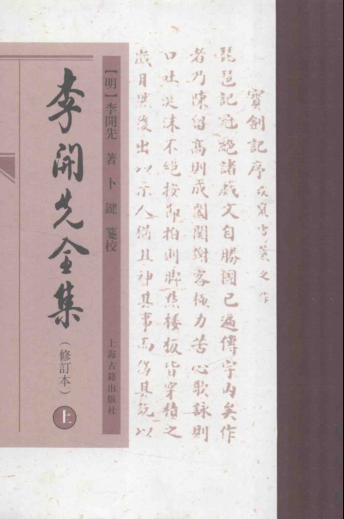 寶劍記序 改竄雪蓑之作
琵琶記冠絕諸戲文自勝國已遍傳宇內矣作
者乃陳留高則成闔關謝客極力苦心歌詠則
口吐涎沫不絕按節拍則脚樓板皆穿積之
歲月然後出以示人猶且神其事而侈其說以
【明】李開先 著 卜鍵 箋校
上海古籍出版社
李開先全集
(修訂本)上